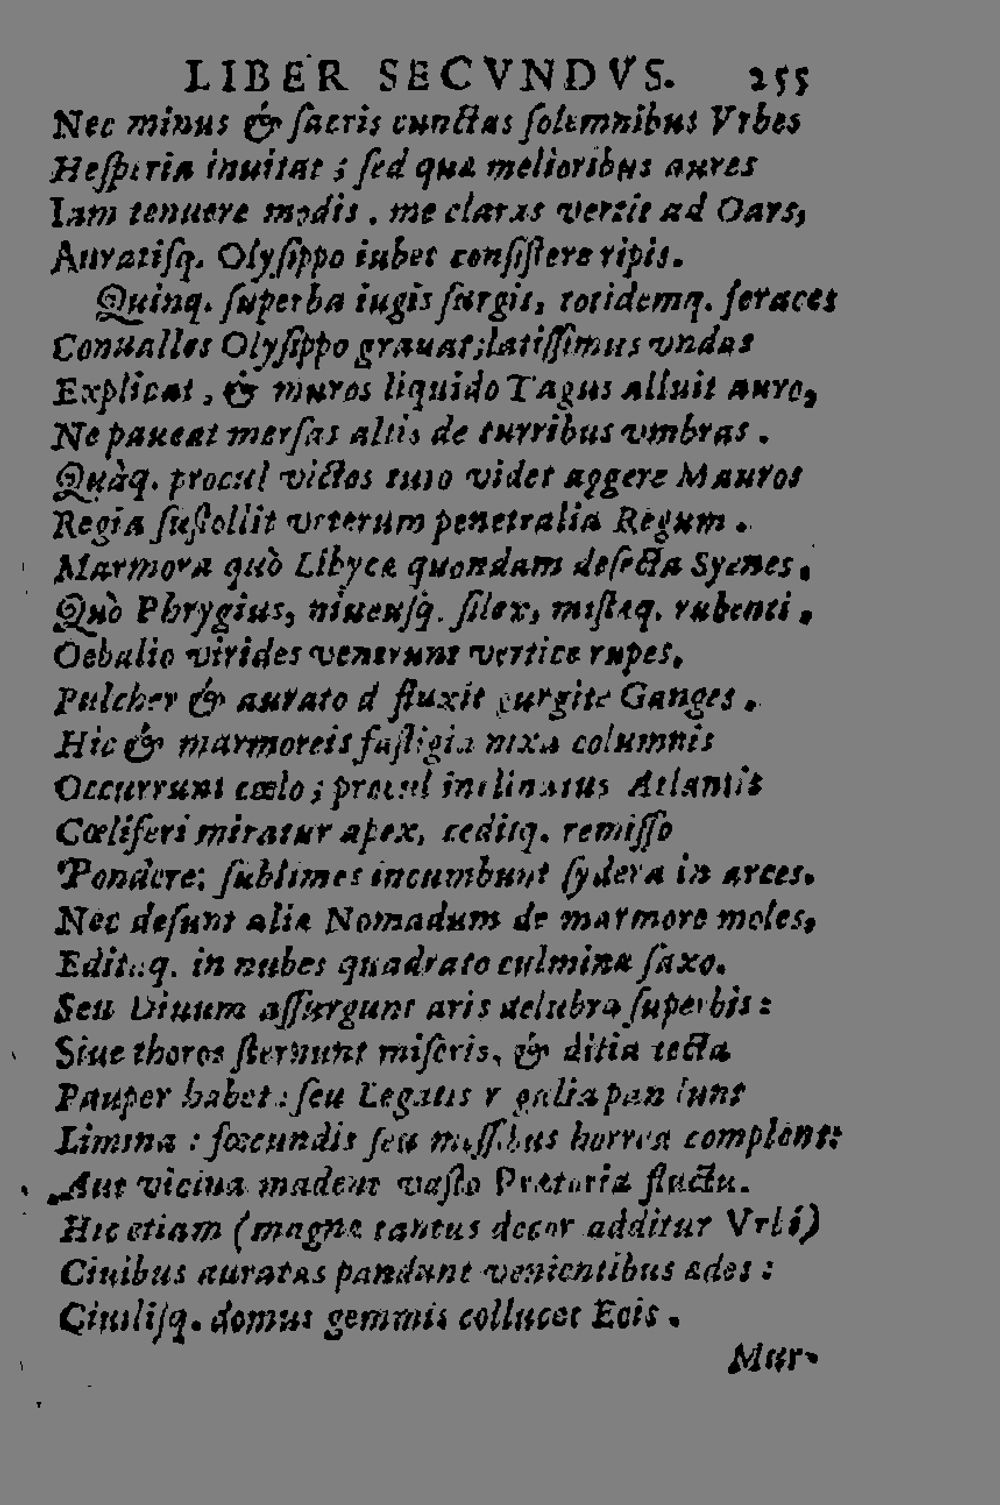 LIBER SECVNDVS. 255
Nec minus & ſacris cunctas ſolemnibus Vrbes
Heſperia inuitat ; ſed quæ melioribus aures
Iam tenuere modis . me claras vertit ad Oars,
Auratiſq. Olyſippo iubet conſiſtere ripis.
Quinq. ſuperba iugis ſurgit, totidemq. feraces
Conualles Olyſippo grauat;latiſſimus vndas
Explicat , & muros liquido Tagus alluit auro,
Ne paueat merſas altis de turribus vmbras .
Quàq. procul victos tuto videt aggere Mauros
Regia ſuſtollit veterum penetralia Regum .
Marmora quò Libycæ quondam deſecta Syenes .
Quò Phrygius, niueuſq. ſilex, miſtæq. rubenti .
Oebalio virides venerunt vertice rupes.
Pulcher & aurato d fluxit gurgite Ganges .
Hic & marmoreis faſtigia nixa columnis
Occurrunt cœlo ; procul inclinatus Atlantis
Cœliferi miratur apex, ceditq. remiſſo
Pondere: ſublimes incumbunt ſydera in arces.
Nec deſunt aliæ Nomadum de marmore moles,
Editaq. in nubes quadrato culmina ſaxo.
Seu Diuum aſſurgunt aris delubra ſuperbis :
Siue thoros ſternunt miſeris, & ditia tecta
Pauper habet : ſeu Legatis regalia pandunt
Limina : fœcundis ſeu meſſibus horrea complent:
Aut vicina madent vaſto Prætoria fluctu.
Hic etiam (magnæ tantus decor additur Vrbi)
Ciuibus auratas pandunt venientibus ædes :
Ciuiliſq. domus gemmis collucet Eois .
Mur-